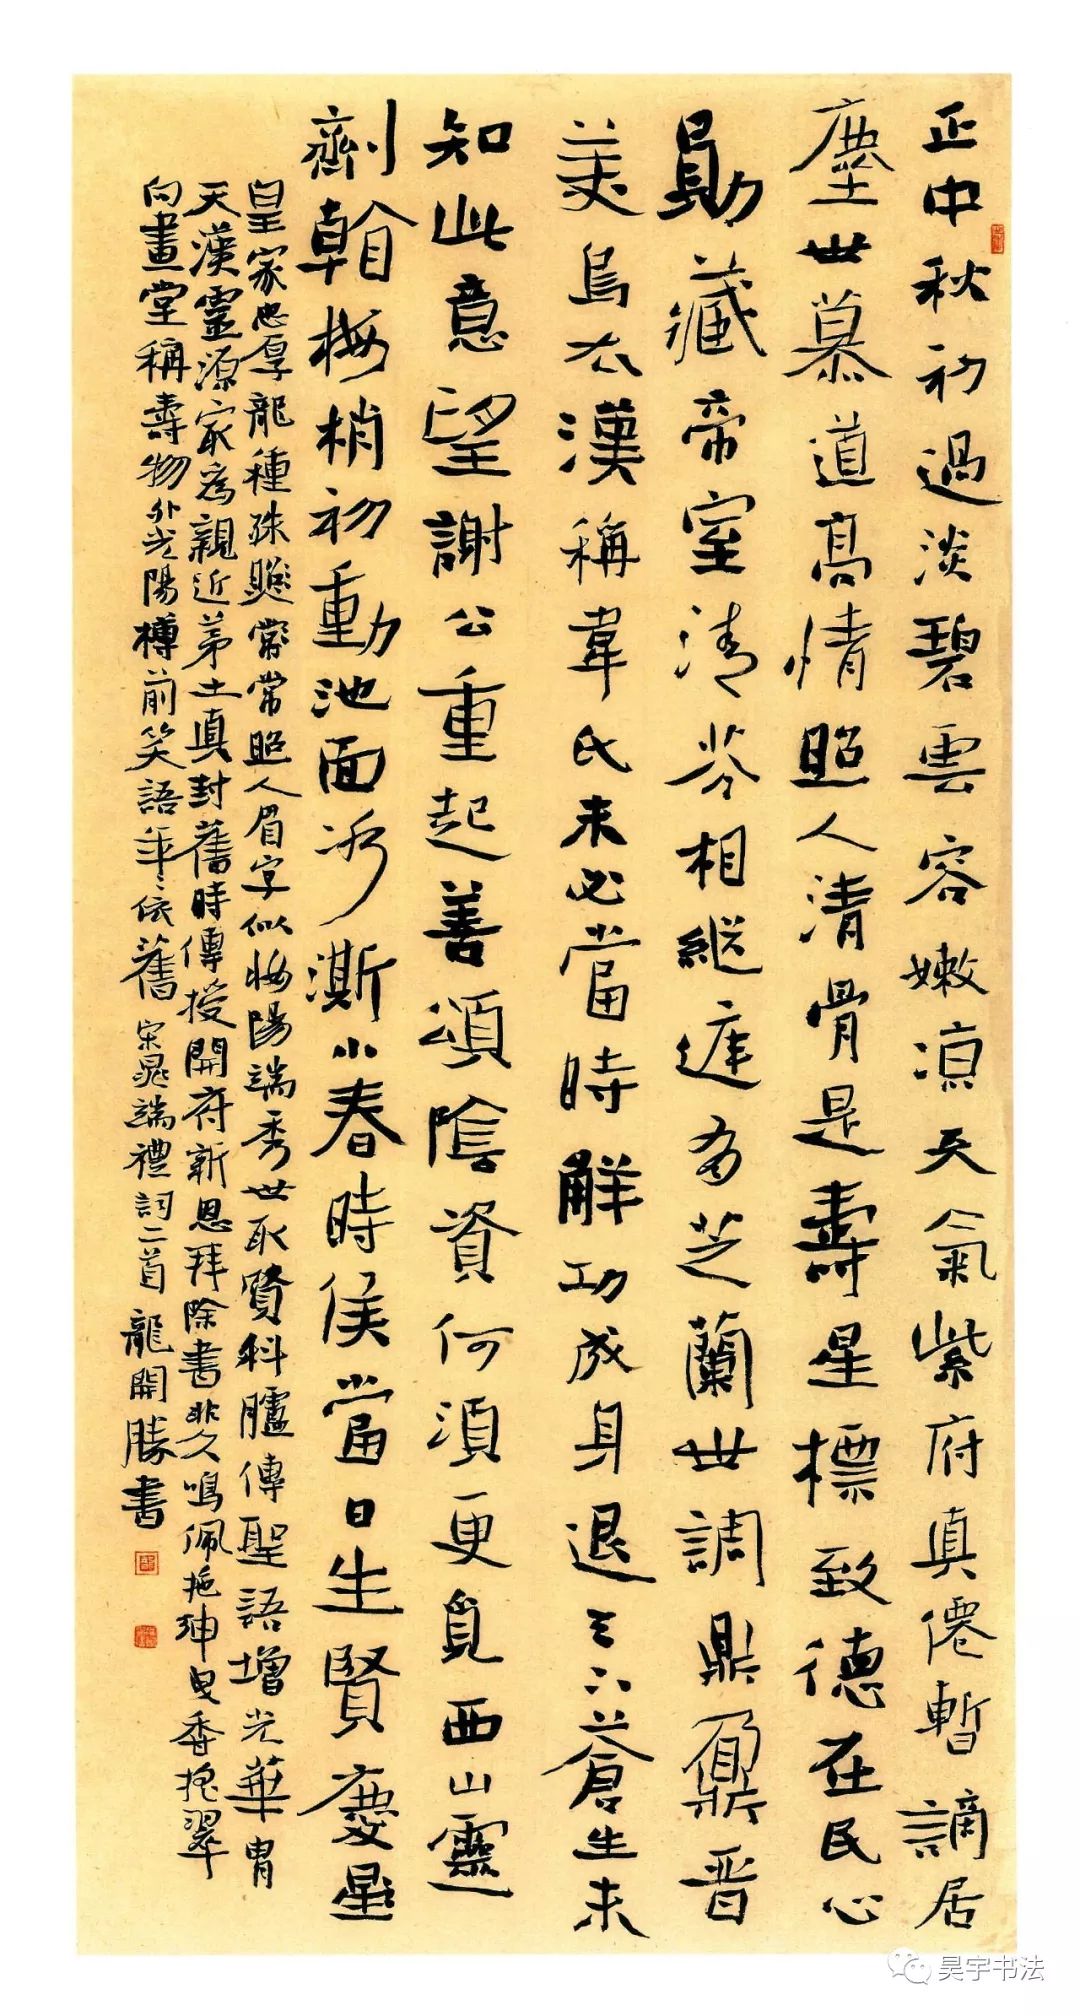 正中秋初過淡碧雲容嫩涼天氣紫府真僊暫謫居
塵世慕道高情照人清骨是壽星標致德在民心
勛藏帝室清芬相繼遮多芝蘭世調鼎鼐晋
美烏衣漢稱韋氏未必當時解功成身退云云蒼生未
知此意望謝公重起善頌陰資何須更覓西山靈
劑翰梅梢初動池面冰澌小春時候當日生賢慶星
皇家忠厚龍種殊常常照人眉宇似妝陽端秀世取賢科臚傳聖語增光華胄
天漢靈源家爲親近茅土真封舊時傳授開府新恩拜除書非久鳴佩拖珅曳香搖翠
向畫堂稱壽物外光陽樽前笑語年年依舊 宋晁端禮詞二首 龍開勝書
昊宇书法